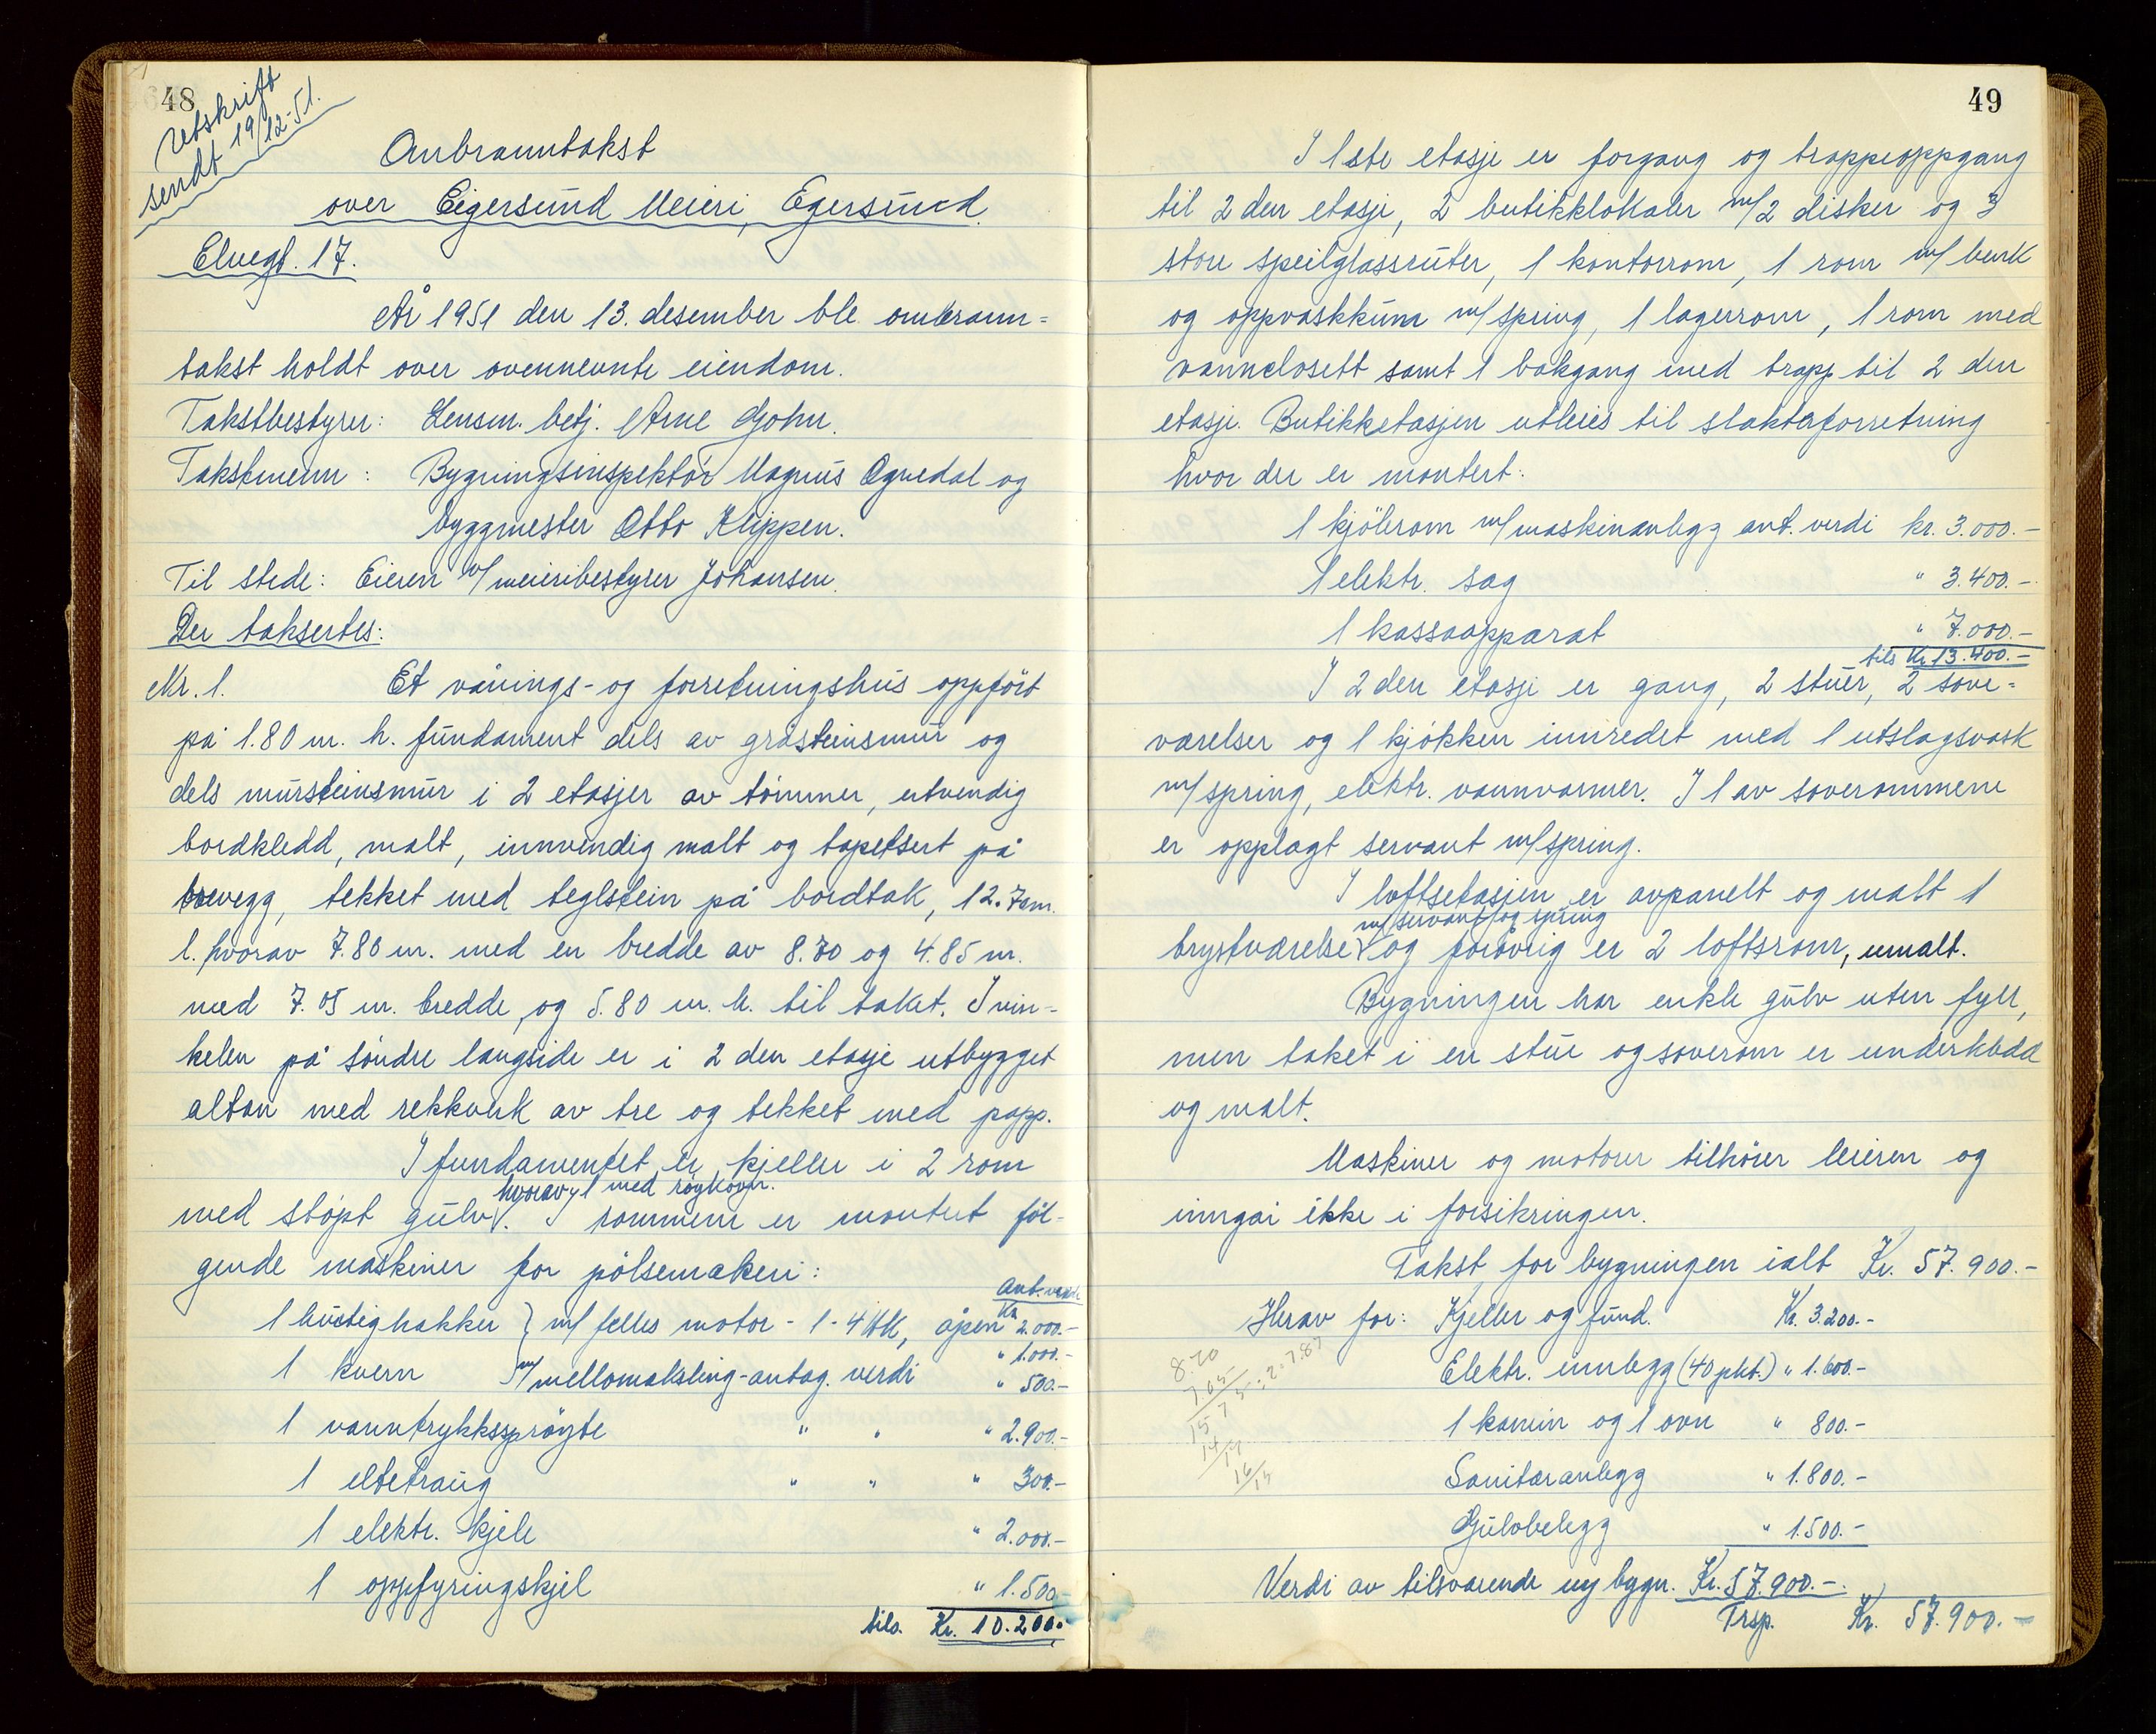 48
Utskrift
sendt 19/12-51.
Ombranntakst
over Eigersund Meieri, Egersund.
Elvegt. 17.
År 1951 den 13. desember ble ombrann=
takst holdt over ovennevnte eiendom.
Takstbestyrer: Lensm. betj. Arne Gohn.
Takstmenn: Bygningsinspektör Magnus Ognedal og
byggmester Otto Klippen.
Til stede: Eieren v/meieribestyrer Johansen.
Der taksertes:
Nr. 1. Et vånings- og forretningshus oppfört
på 1.80 m. h. fundament dels av gråsteinsmur og
dels mursteinsmur i 2 etasjer av tömmer, utvendig
bordkledd, malt, innvendig malt og tapetsert på
trevegg, tekket med teglstein på bordtak, 12.70m.
l. hvorav 7.80 m. med en bredde av 8.70 og 4.85 m.
med 7.05 m. bredde, og 5.80 m. h. til taket. I vin-
kelen på söndre langside er i 2 den etasje utbygget
altan med rekkverk av tre og tekket med papp.
I fundamentet er kjeller i 2 rom
hvorav 1 med röykovn.
med stöpt gulv. I rommene er montert föl-
gende maskiner for pölsemakeri:
Ant. verdi
1 hurtighakker } m/ felles motor - 1 - 4 HK, åpen Kr 2.000.-
" 1.000.-
1 kvern m/mellomaksling-antag. verdi " 500.-
1 vanntrykksspröyte " " " 2.900.-
1 eltetraug " " " 300.-
1 elektr. kjele " 2.000.-
1 oppfyringskjel " 1.500.-
tils. Kr. 10.200.-
49
I 1ste etasje er forgang og trappeoppgang
til 2 den etasje, 2 butikklokaler m/2 disker og 3
store speilglassruter, 1 kontorrom, 1 rom m/ benk
og oppvaskkum m/spring, 1 lagerrom, 1 rom med
vannclosett samt 1 bakgang med trapp til 2 den
etasje. Butikketasjen utleies til slakterforretning
hvor der er montert:
1 kjölerom m/maskinanlegg ant. verdi kr. 3.000.-
1 elektr. sag " 3.400.-
1 kassaapparat " 7.000.-
tils Kr 13.400.-
I 2 den etasje er gang, 2 stuer, 2 sove=
værelser og 1 kjökken innredet med 1 utslagsvask
m/spring, elektr. vannvarmer. I 1 av soverommene
er opplagt servant m/spring.
I loftsetasjen er avpanelt og malt 1
m/servant og spring
brystværelse og forövrig er 2 loftsrom, umalt.
Bygningen har enkle gulv uten fyll,
men taket i en stue og soverom er underkledd
og malt.
Maskiner og motorer tilhörer leieren og
inngår ikke i forsikringen.
Takst for bygningen ialt Kr. 57.900.-
Herav for: Kjeller og fund. Kr. 3.200.-
Elektr. innlegg (40 pkt.) " 1.600.-
1 kamin og 1 ovn " 800.-
Sanitæranlegg " 1.800.-
Gulvbelegg " 1.500.-
8.70
7.05
15 75 : 2 = 7.87
14
17
16
15
Verdi av tilsvarende ny bygn. Kr. 57.900.-
Trsp. Kr. 57.900.-